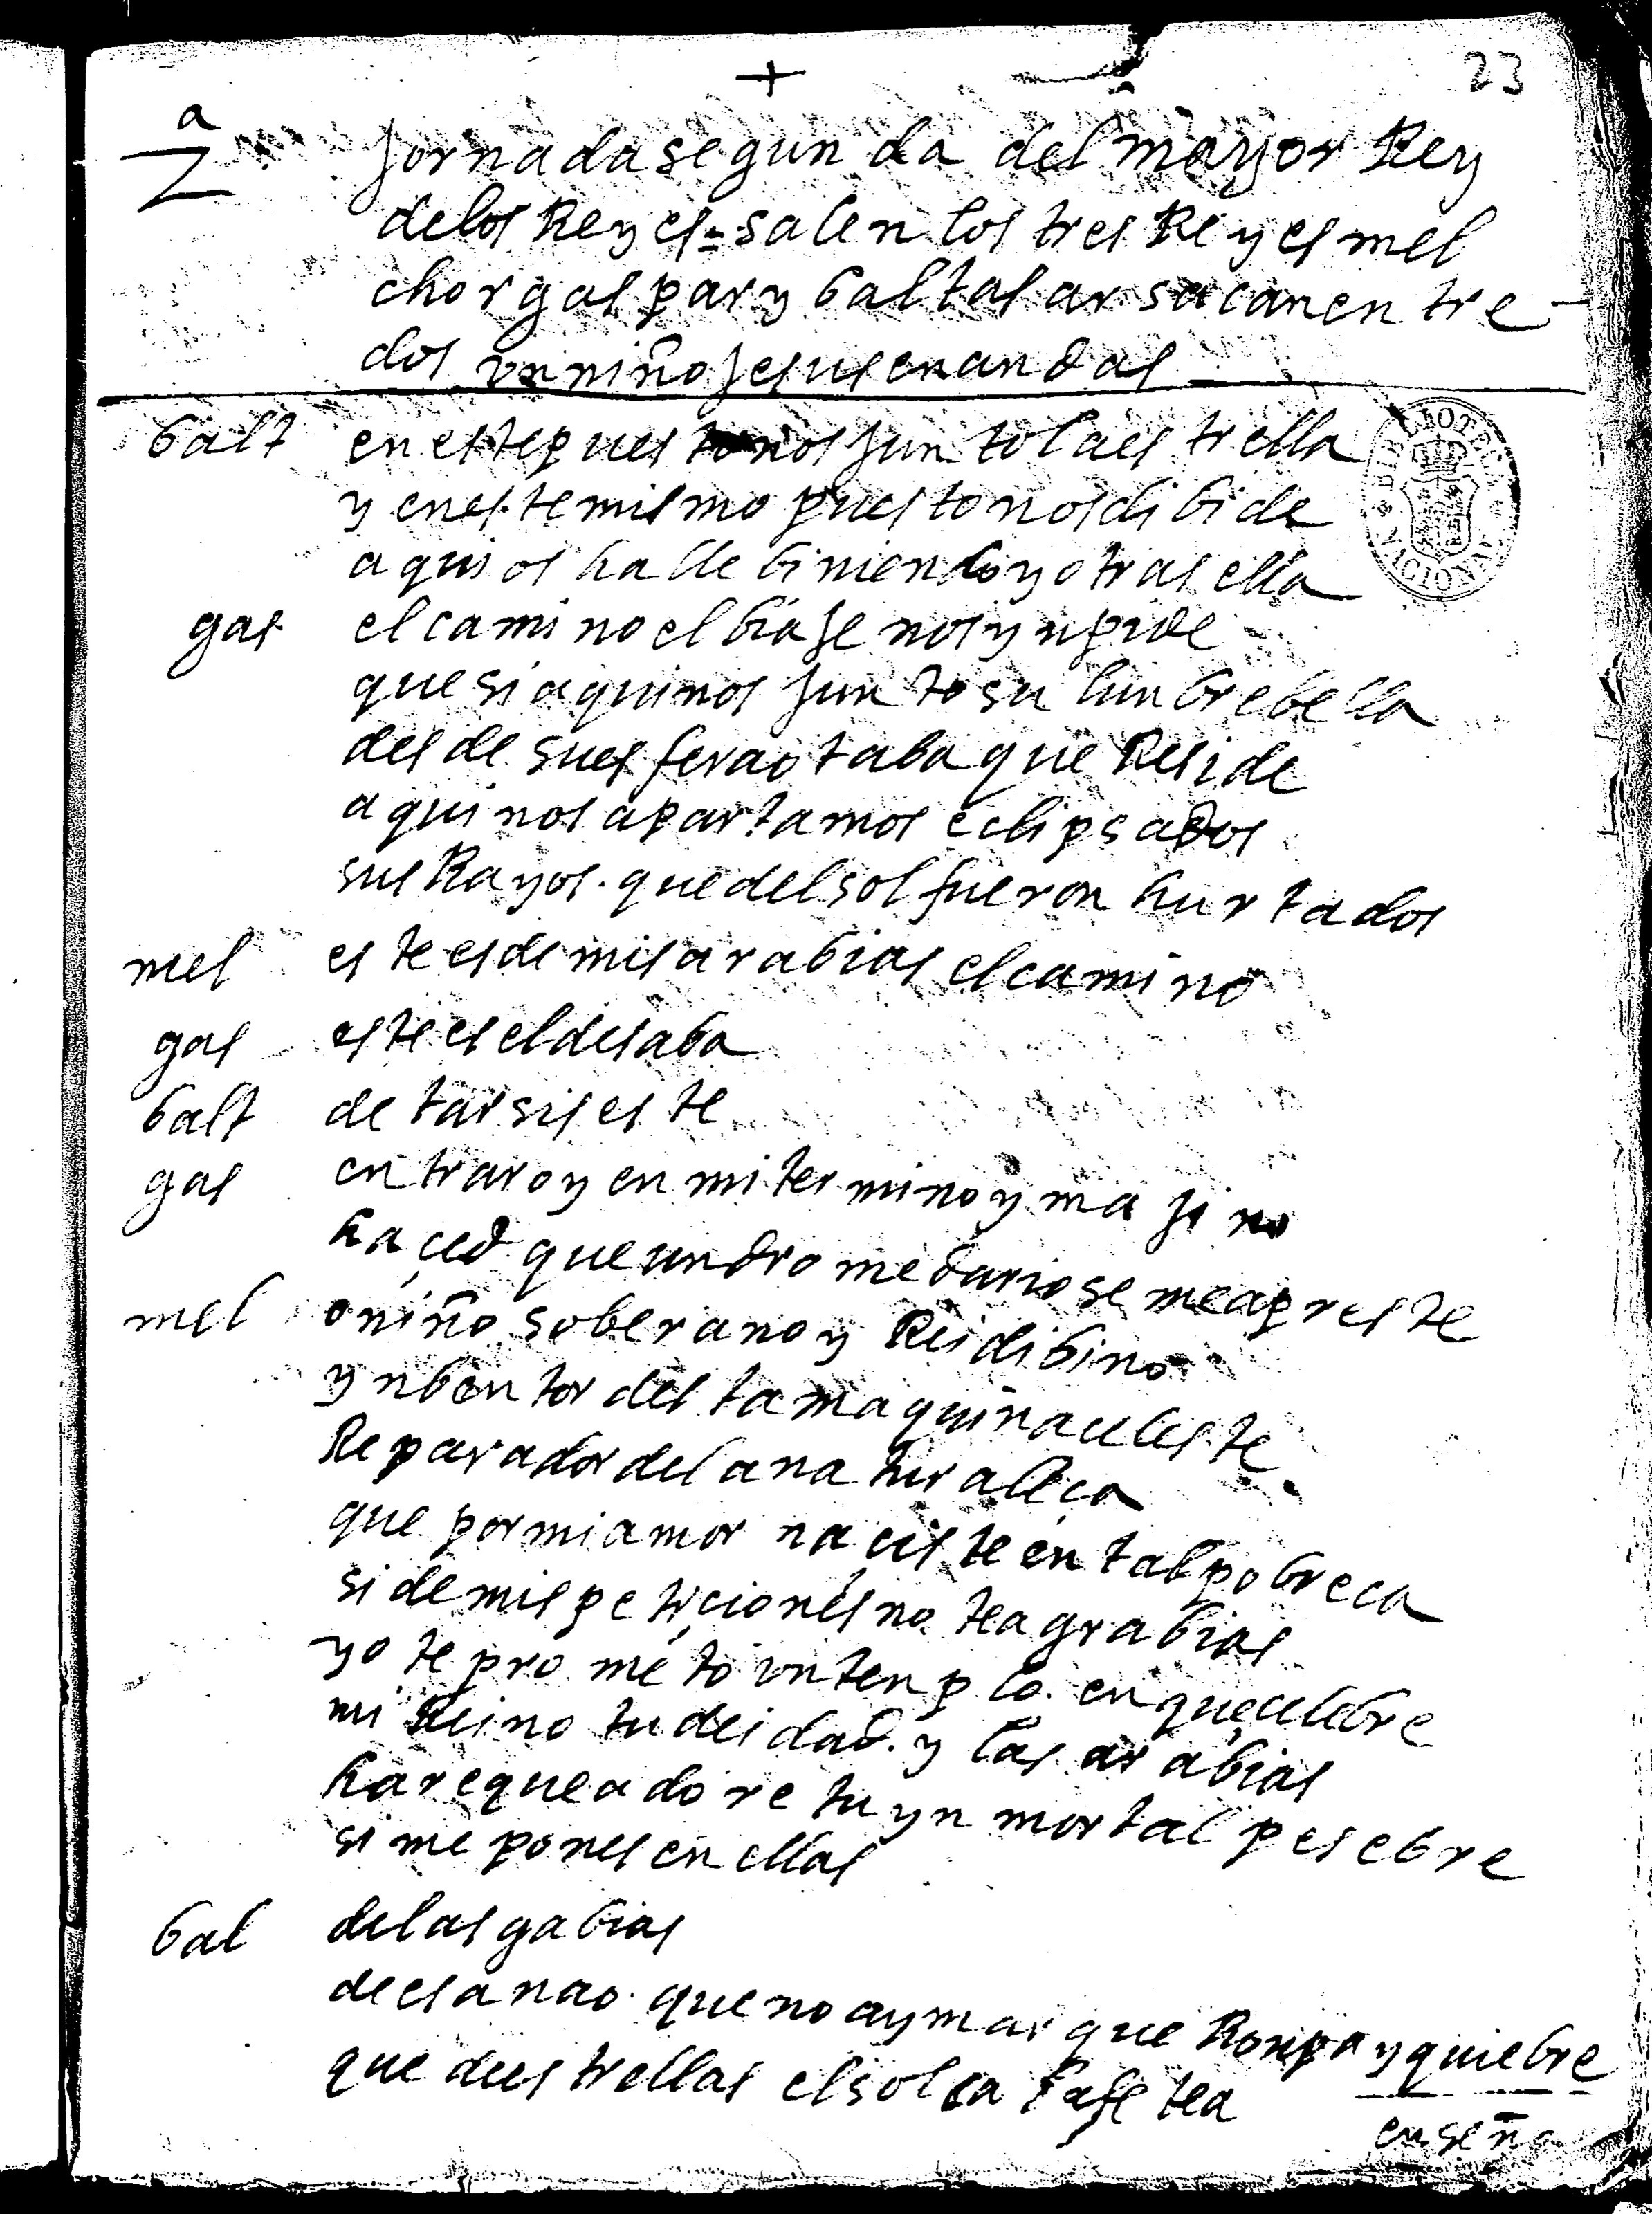 +
23
2a
Jornada segunda del mayor Rey
de los Reyes = salen los tres Reyes mel
chor gaspar y baltasar sacan entre
dos vn niño Jesus en andas
balt en este puesto nos junto la estrella
y en este mismo puesto nos dibide
aqui os halle biniendo yo tras ella
gas el camino el biaje nos ynpide
que si aqui nos junto su lunbre bella
desde su esfera otaba que Reside
aqui nos apartamos eclipsados
sus Rayos. que del sol fueron hurtados
mel este es de mis arabias el camino
gas este es el de saba
balt de tarsis este
gas entrar oy en mi termino ymajino
haced que un dromedario se me apreste
mel o niño soberano y Rei dibino
ynbentor desta maquina celeste
Reparador de la naturaleça
que por mi amor naciste en tal pobreça
si de mis peticiones no te agrabias
yo te prometo vn tenplo. en que celebre
mi Reino tu deidad. y las arabias
hare que adore tu ynmortal pesebre
si me pones en ellas
bal de las gabias
de esa nao. que no ay mar que Ronpa y quiebre
que de estrellas el sol la
enseña
BIBLIOTECA NACIONAL